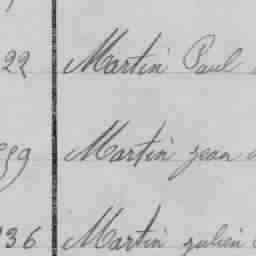 22 Martin Paul
Martin jean
36 Martin julien